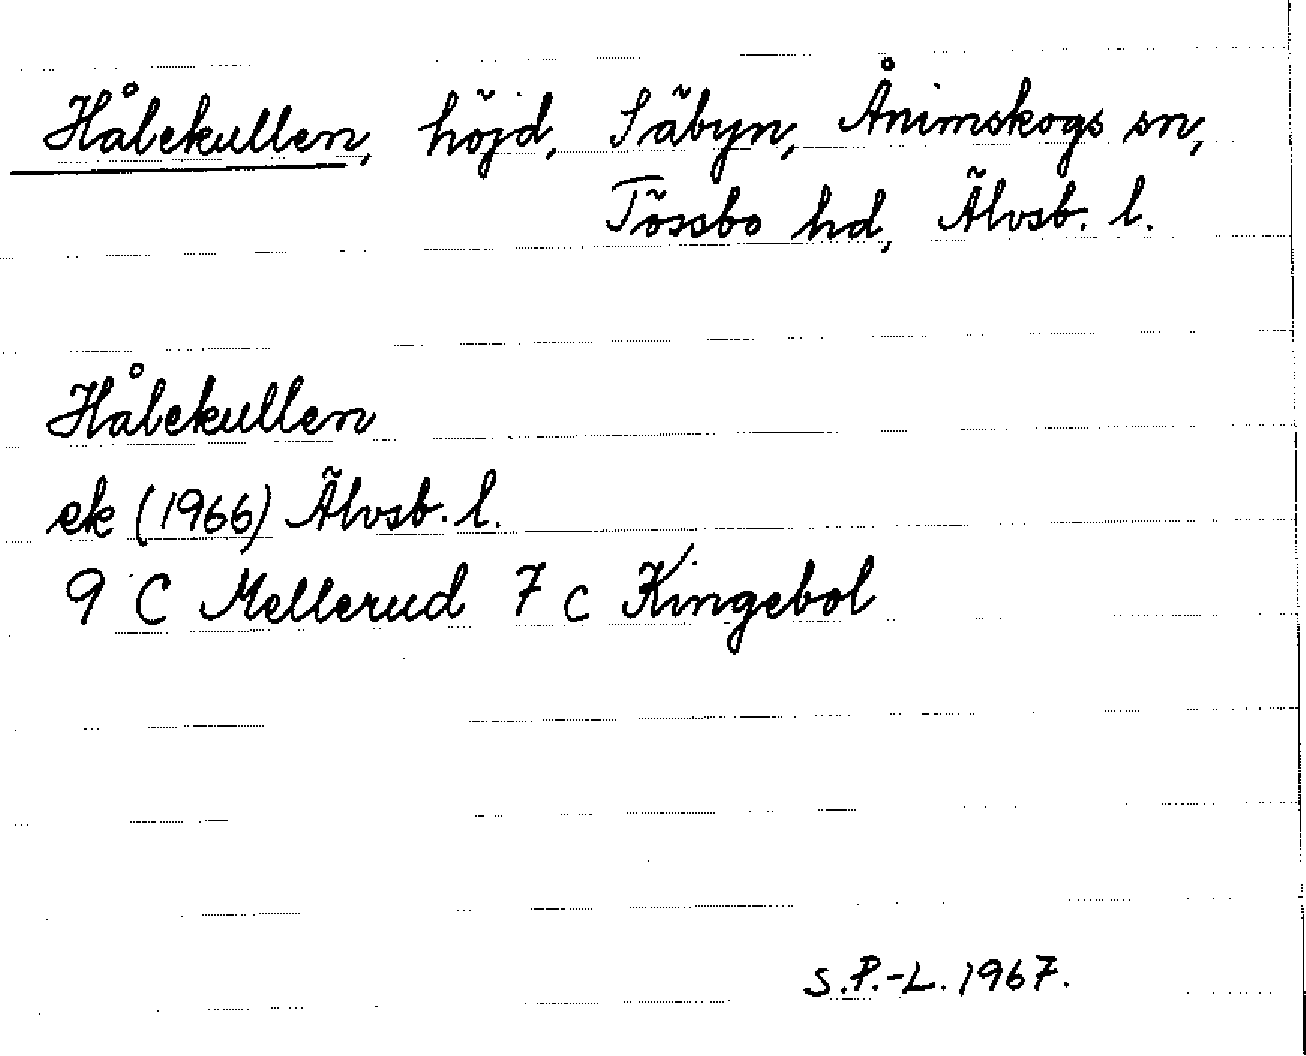 Hålekullen, höjd, Säbyn, Ånimskogs sn,
Tössbo hd, Älvsb. l.
Hålekullen
ek (1966) Älvsb. l.
9 C Mellerud 7 c Kingebol
S.P.-L. 1967.